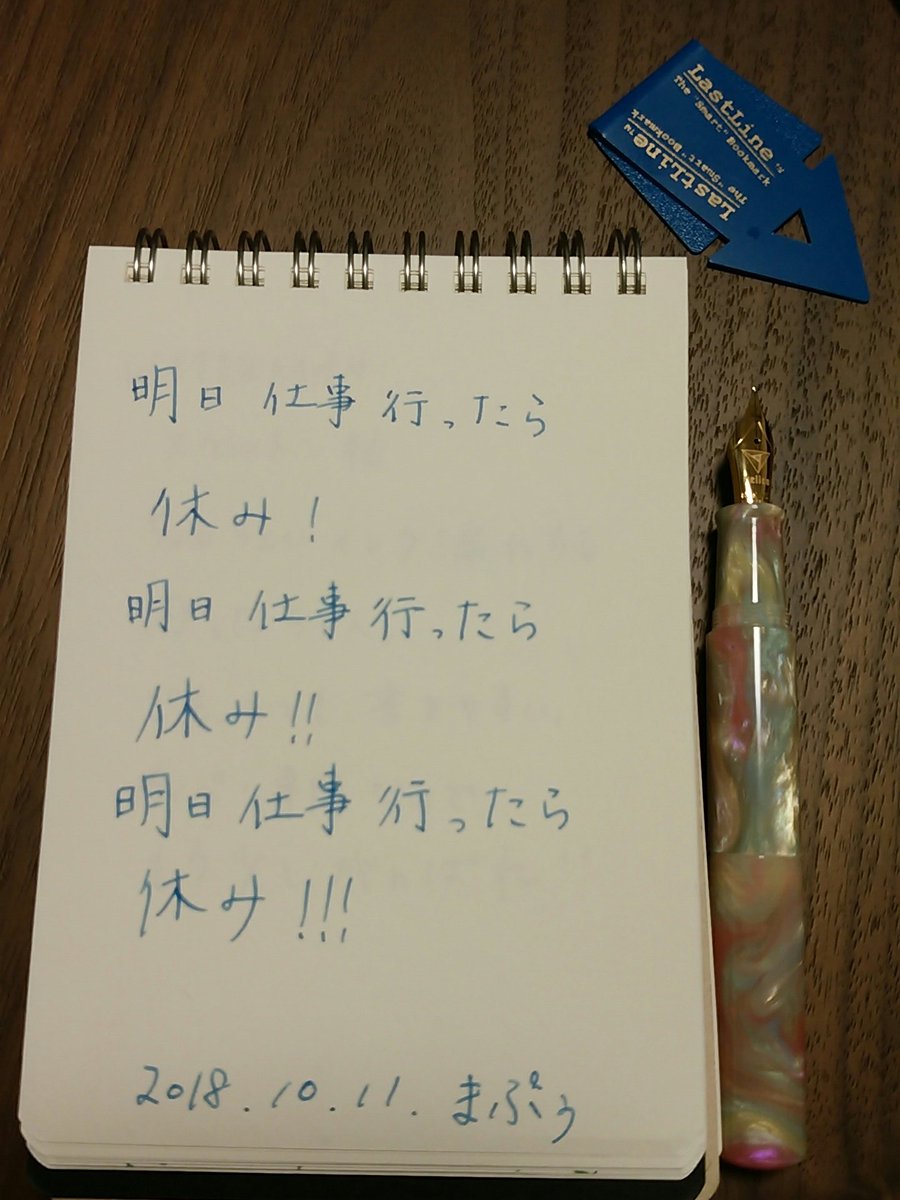 LastLine™
The "Smart" Bookmark
LastLine™
The "Smart" Bookmark
明日 仕事 行ったら
休み!
明日 仕事 行ったら
休み!!
明日 仕事 行ったら
休み!!!
2018.10.11. まぷぅ